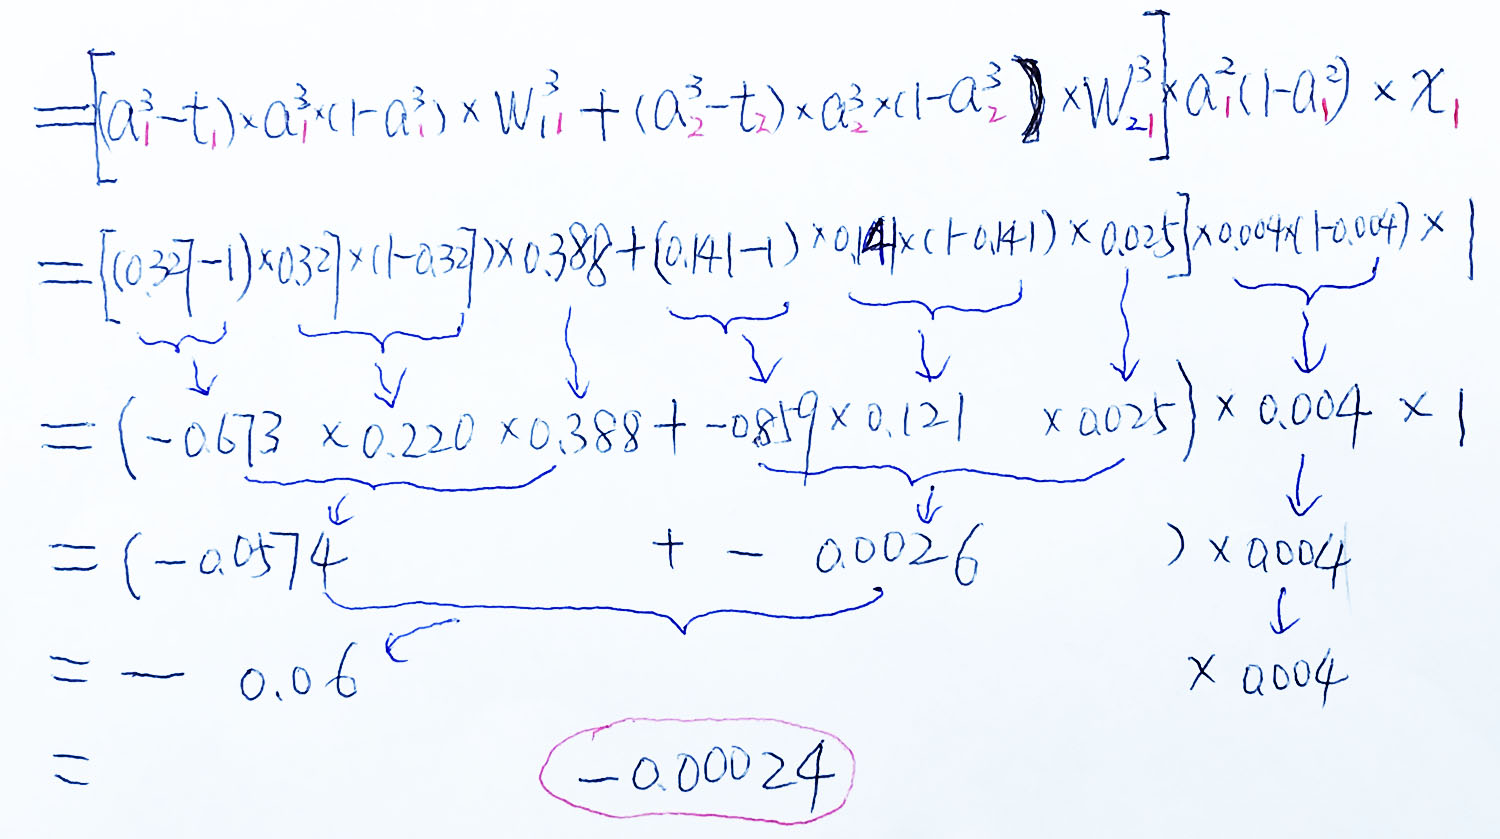 =[(a₁³-t₁)×a₁³×(1-a₁³)×W₁₁³+(a₂³-t₂)×a₂³×(1-a₂³)×W₂₁³]×a₁²(1-a₁²)×x₁
=[(0.327-1)×0.327×(1-0.327)×0.388+(0.141-1)×0.141×(1-0.141)×0.025]×0.004×(1-0.004)×1
=(-0.673×0.220×0.388+-0.859×0.121×0.025)×0.004×1
=(-0.0574+-0.0026)×0.004
=-0.06×0.004
=-0.00024